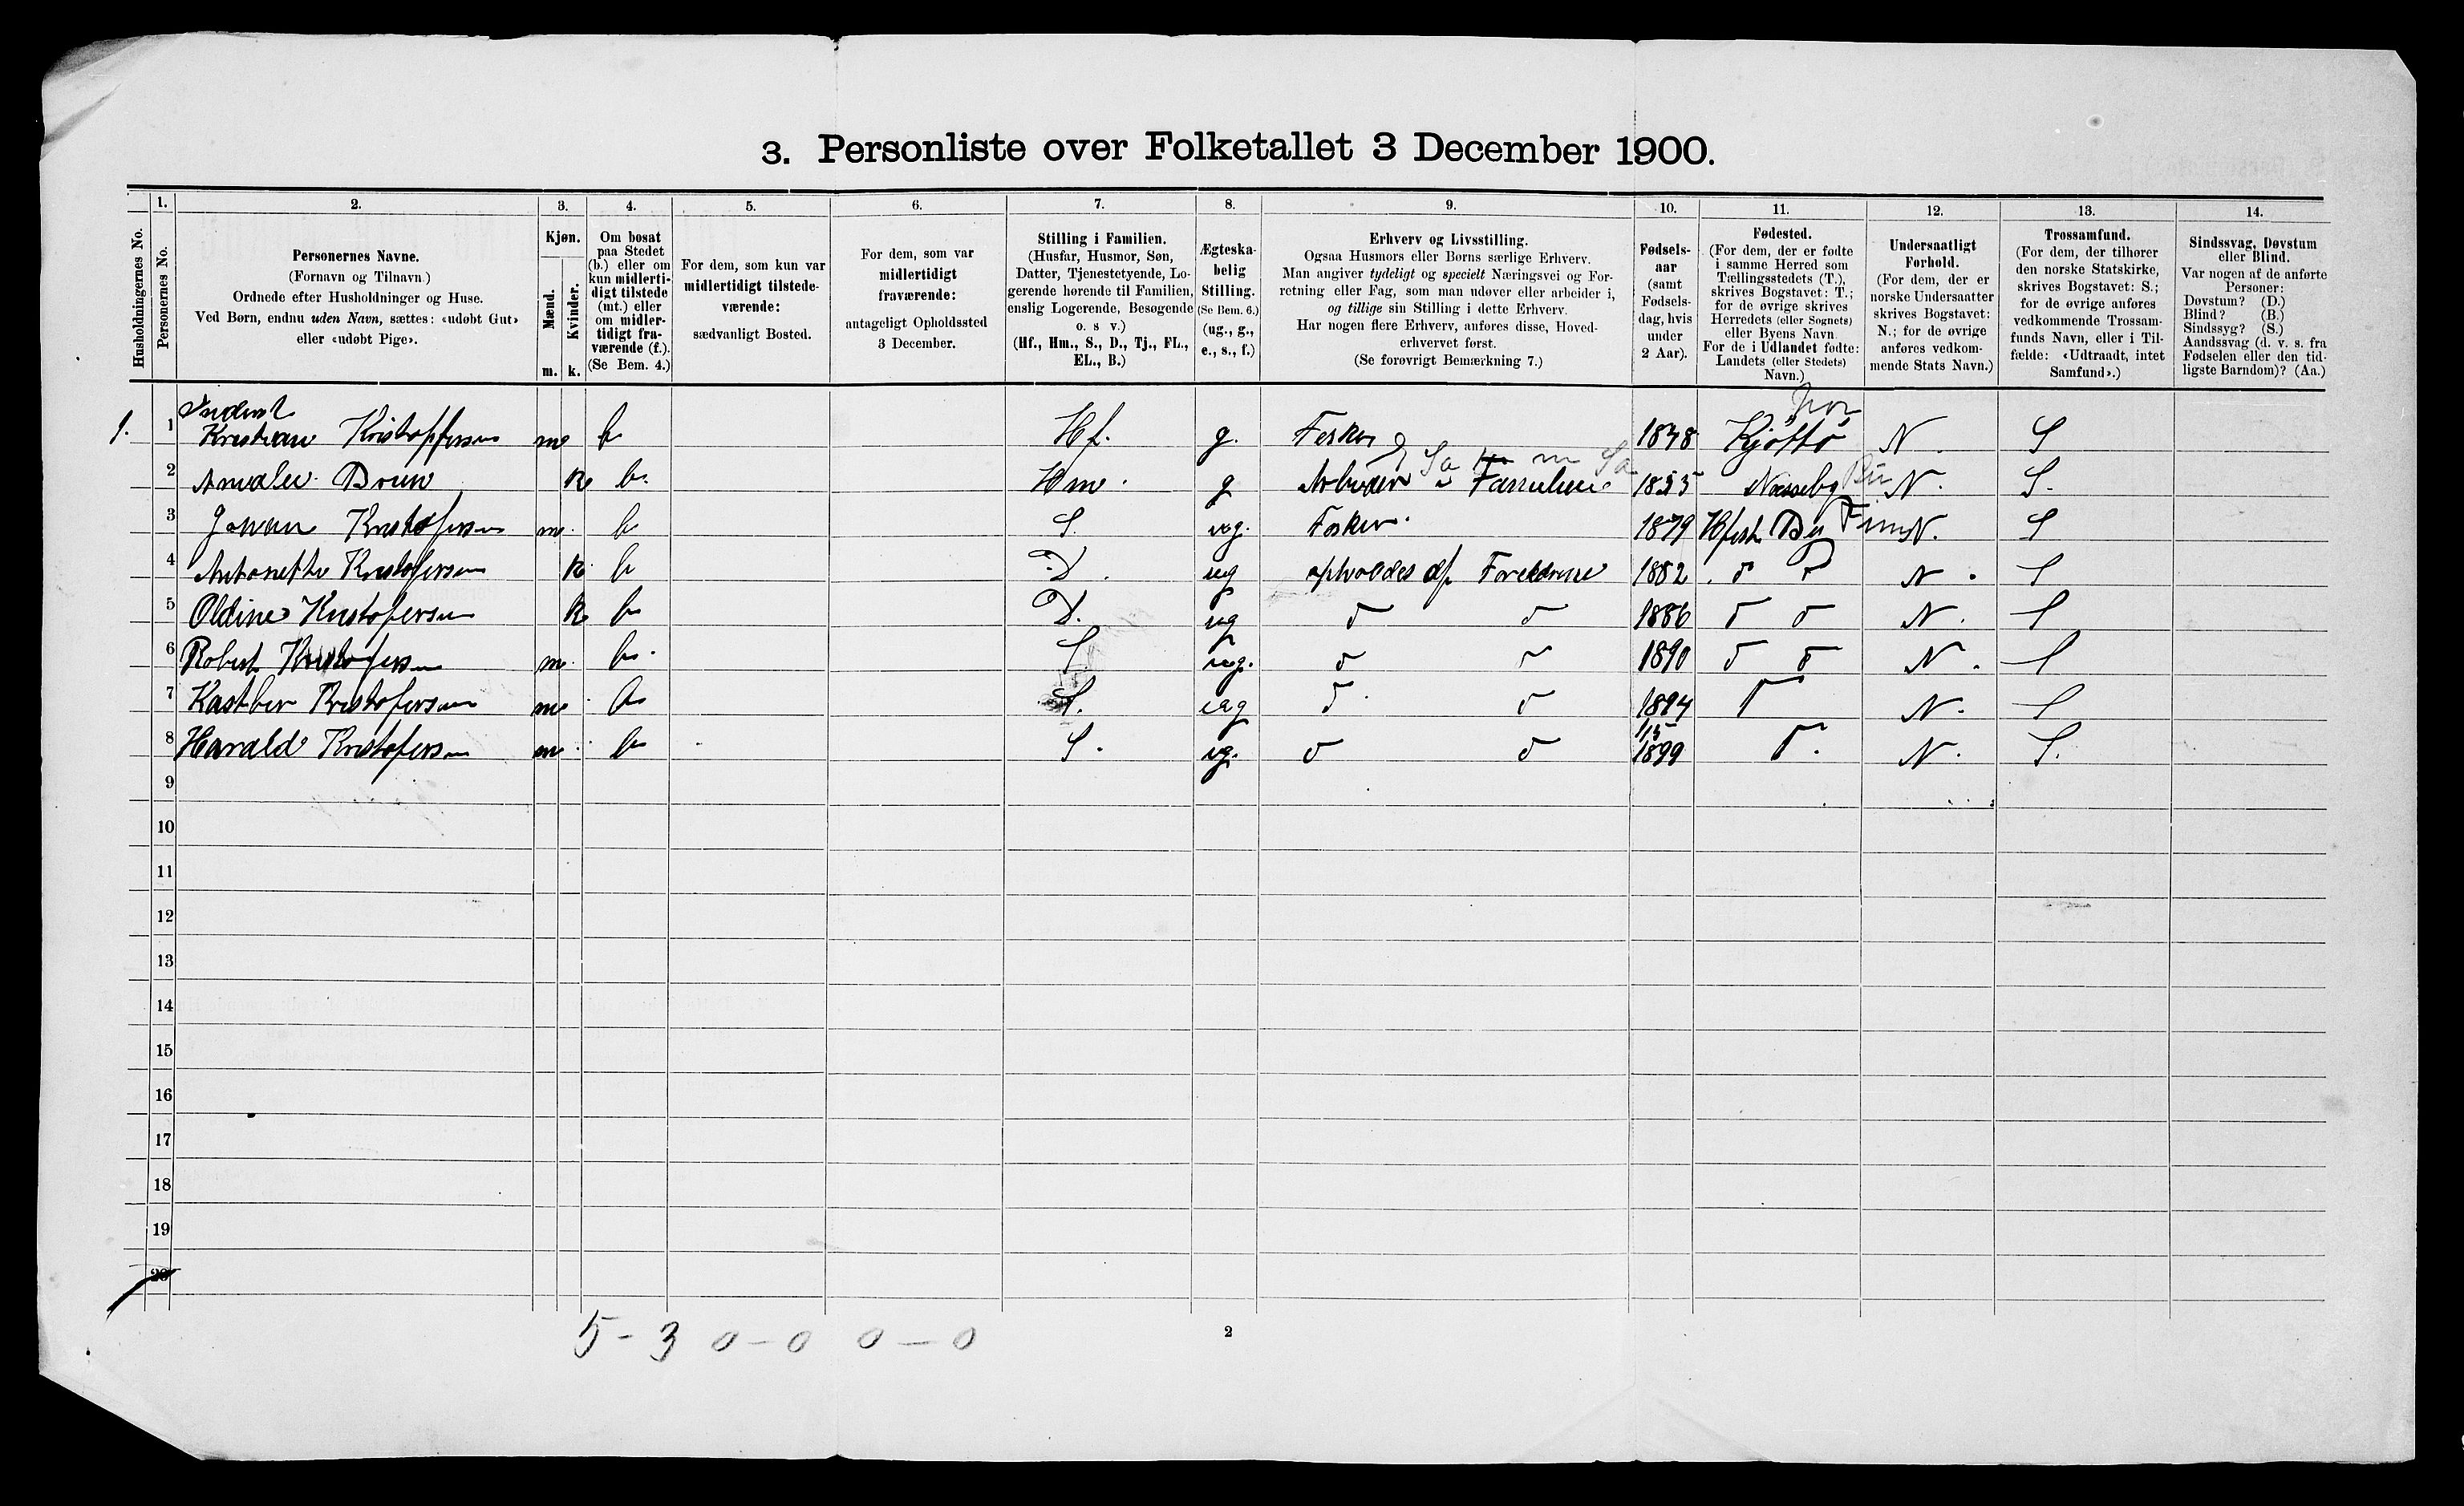 3. Personliste over Folketallet 3 December 1900.
Husholdningernes No.
1. Personernes No.
2. Personernes Navne.
(Fornavn og Tilnavn)
Ordnede efter Husholdninger og Huse.
Ved Børn, endnu uden Navn, sættes: «udøbt Gut»
eller «udøbt Pige».
3. Kjøn.
Mænd. m.
Kvinder. k.
4. Om bosat
paa Stedet
(b.) eller om
kun midlerti-
digt tilstede
(mt.) eller
om midler-
tidigt fra-
værende (f.).
(Se Bem. 4.)
5. For dem, som kun var
midlertidigt tilstede-
værende:
sædvanligt Bosted.
6. For dem, som var
midlertidigt
fraværende:
antageligt Opholdssted
3 December.
7. Stilling i Familien.
(Husfar, Husmor, Søn,
Datter, Tjenestetyende, Lo-
gerende hørende til Familien,
enslig Logerende, Besøgende
o. s v.)
(Hf., Hm., S., D., Tj., FL.,
EL., B.)
8. Ægteska-
belig
Stilling.
(Se Bem. 6.)
(ug., g.,
e., s., f.)
9. Erhverv og Livsstilling.
Ogsaa Husmors eller Børns særlige Erhverv.
Man angiver tydeligt og specielt Næringsvei og For-
retning eller Fag, som man udøver eller arbeider i,
og tillige sin Stilling i dette Erhverv.
Har nogen flere Erhverv, anføres disse, Hoved-
erhvervet først.
(Se forøvrigt Bemærkning 7.)
10. Fødsels-
aar
(samt
Fødsels-
dag, hvis
under
2 Aar).
11. Fødested.
(For dem, der er fødte
i samme Herred som
Tællingsstedets (T.),
skrives Bogstavet: T.;
for de øvrige skrives
Herredets (eller Sognets)
eller Byens Navn.
For de i Udlandet fødte:
Landets (eller Stedets)
Navn.)
12. Undersaatligt
Forhold.
(For dem, der er
norske Undersaatter
skrives Bogstavet:
N.; for de øvrige
anføres vedkom-
mende Stats Navn.)
13. Trossamfund.
(For dem, der tilhører
den norske Statskirke,
skrives Bogstavet: S.;
for de øvrige anføres
vedkommende Trossam-
funds Navn, eller i Til-
fælde: «Udtraadt, intet
Samfund».)
14. Sindssvag, Døvstum
eller Blind.
Var nogen af de anførte
Personer:
Døvstum? (D.)
Blind? (B.)
Sindssyg? (S.)
Aandssvag (d. v. s. fra
Fødselen eller den tid-
ligste Barndom)? (Aa.)
1. 1 Kristian Kristoffersen m b Hf. g. Fisker 1848 Kjøttø N S
2 Amalie Brun k b. Hm. g Arbeider i Familien 1855 Næsseby N. S.
3 Johan Kristofersen m. b S. ug. Fisker. 1879 N. S
4 Antonette Kristofersen k. b D. ug opholdes af Foreldrene 1882 N. S
5 Oldine Kristofersen k b D. ug 1886 N. S
6 Robert Kristofersen m. b. S ug. 1890 N. S
7 Kastber Kristofersen m b S. ug 1894 N. S
8 Harald Kristofersen m. b S. ug. 1/15 1899 N. S.
9
10
11
12
13
14
15
16
17
18
19
20
5 - 3 0 - 0 0 - 0
2